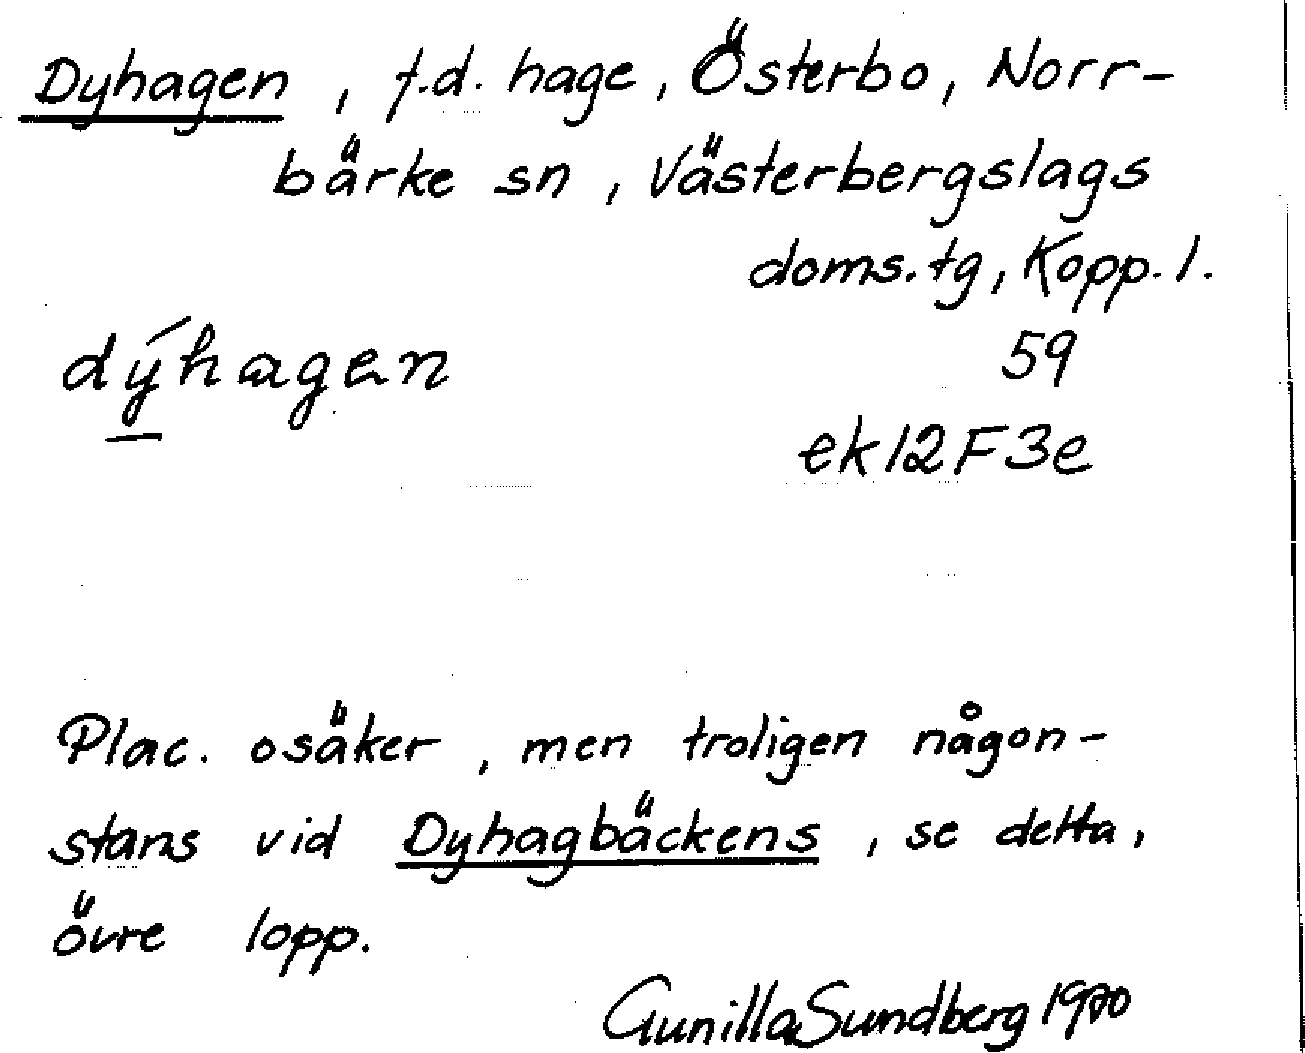 Dyhagen, f.d. hage, Österbo, Norr-
bärke sn, Västerbergslags
doms.tg, Kopp. l.
dýhagen
59
ek12F3e
Plac. osäker, men troligen någon-
stans vid Dyhagbäckens, se detta,
övre lopp.
Gunilla Sundberg 1970